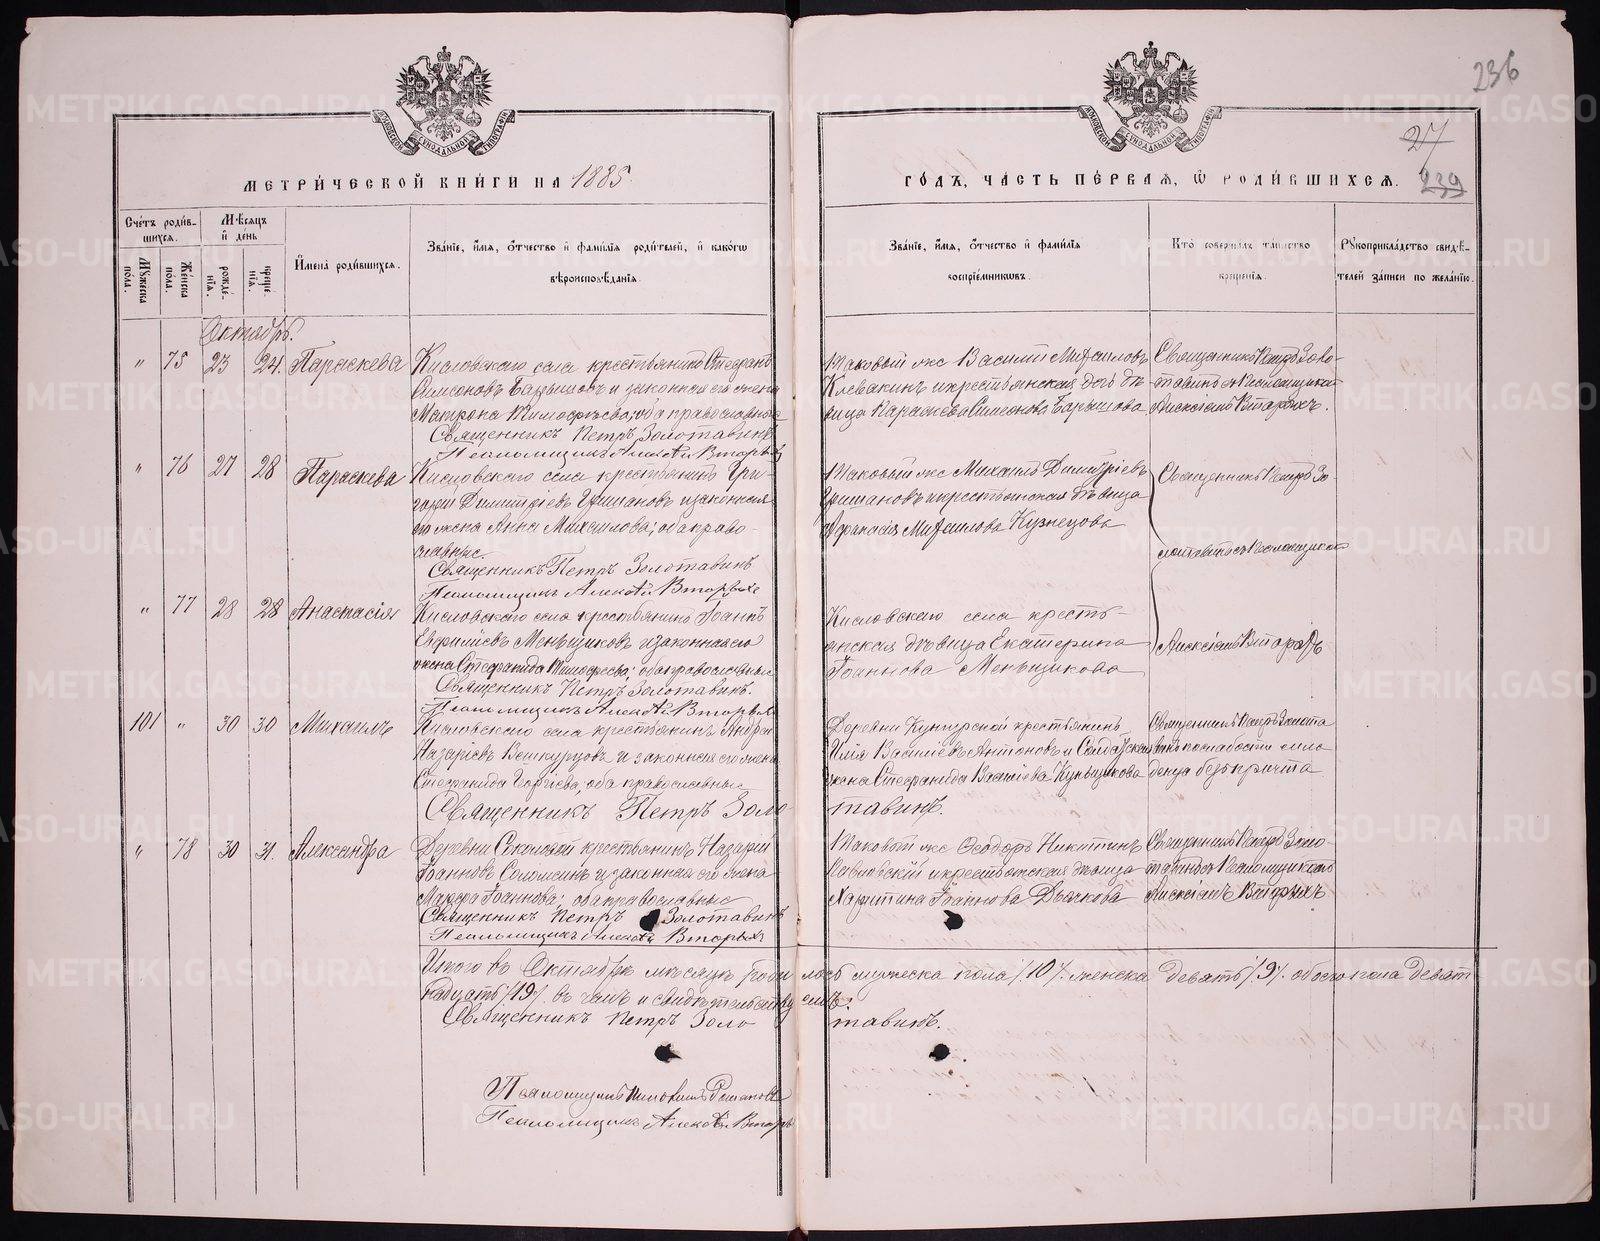 236
27
239
МЕТРИЧЕСКОЙ КНИГИ НА 1885
ГОДЪ, ЧАСТЬ ПЕРВАЯ, Ѡ РОДИВШИХСЯ.
Счетъ родив-
шихся.
Мѣсяцъ
и день
Мужеска
пола.
Женска
пола.
рожде-
нія.
креще-
нія.
Имена родившихся.
Званіе, имя, отчество и фамилія родителей, и какогѡ
вѣроисповѣданія.
Званіе, имя, отчество и фамилія
воспріемниковъ.
Кто совершалъ таинство
крещенія.
Рукоприкладство свидѣ-
телей записи по желанію.
Октябрь.
" 75 23 24. Параскева
Кисловскаго села крестьянинъ Стефанъ
Симеоновъ Барышовъ и законная его жена
Матрона Тимофѣева; оба православные
Священникъ Петръ Золотавинъ
Псаломщикъ Алексѣй Вторыхъ
Таковый же Василій Михаиловъ
Клевакинъ и крестьянская дочь дѣ-
вица Параскева Симеонова Барышова
Священникъ Петръ Золо-
тавинъ съ Псаломщикомъ
Алексіемъ Вторыхъ.
" 76 27 28 Параскева
Кисловскаго села крестьянинъ Гри-
горій Димитріевъ Гришановъ и законная
его жена Анна Михаилова; оба право-
славные.
Священникъ Петръ Золотавинъ
Псаломщикъ Алексѣй Вторыхъ
Таковый же Михаилъ Димитріевъ
Гришановъ и крестьянская дѣвица
Афанасія Михаилова Кузнецова
Священникъ Петръ Зо-
лотавинъ съ Псаломщикомъ
" 77 28 28 Анастасія
Кисловскаго села крестьянинъ Іоаннъ
Евфиміевъ Меньщиковъ и законная его
жена Стефанида Тимофеева; оба православные
Священникъ Петръ Золотавинъ.
Псаломщикъ Алексѣй Вторыхъ
Кисловскаго села кресть-
янская дѣвица Екатерина
Іоаннова Меньщикова
Алексіемъ Вторыхъ
101 " 30 30 Михаилъ
Кисловскаго села крестьянинъ Андрей
Назаріевъ и законная его жена
Стефанида Георгіева; оба православные
Священникъ Петръ Золо-
тавинъ.
Деревни крестьянинъ
Илія Василіевъ Антоновъ и Солдатская
жена Стефанида Василіева
Священникъ Петръ Золота-
винъ по слабости мла-
денца безъ причта
" 78 30 31. Александра
Деревни крестьянинъ Назарій
Іоанновъ Соломеинъ и законная его жена
Марфа Іоаннова; оба православные
Священникъ Петръ Золотавинъ
Псаломщикъ Алексѣй Вторыхъ
Таковый же Ѳеодоръ Никитинъ
и крестьянская дѣвица
Харитина Іоаннова Дьячкова
Священникъ Петръ Золо-
тавинъ съ Псаломщикомъ
Алексіемъ Вторыхъ
Итого въ Октябрѣ мѣсяцѣ родилось мужеска пола /10/. женска девять /9/. обоего пола девят-
надцать /19/. въ чемъ и свидѣтельствуемъ.
Священникъ Петръ Золотавинъ.
Псаломщикъ
Псаломщикъ Алексѣй Вторыхъ
METRIKI.GASO-URAL.RU